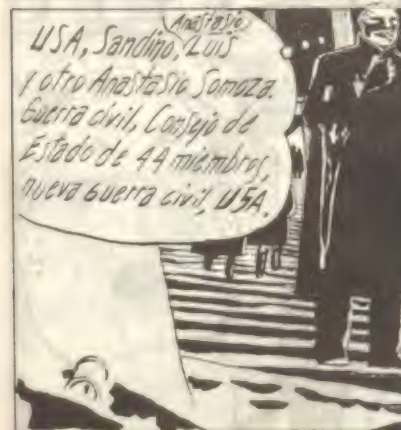 USA, Sandino, Anastasio, Luis
y otro Anastasio Somoza.
Guerra civil, Consejo de
Estado de 44 miembros,
nueva guerra civil, USA.